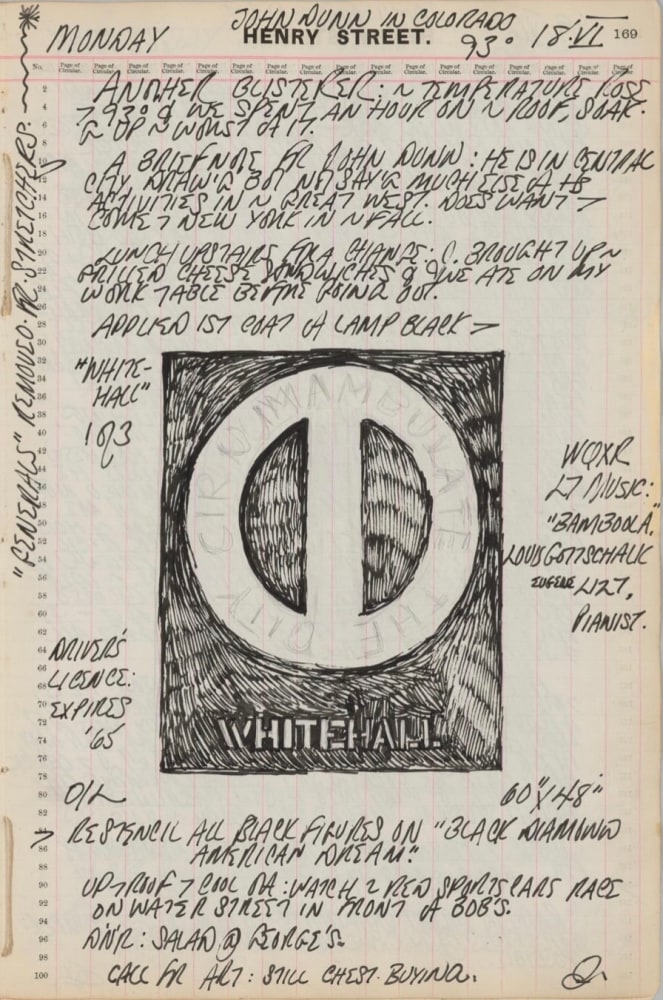 JOHN DUNN IN COLORADO
MONDAY
HENRY STREET.
93° 18·VI 169
No. Page of Circular. Page of Circular. Page of Circular. Page of Circular. Page of Circular. Page of Circular. Page of Circular. Page of Circular. Page of Circular. Page of Circular. Page of Circular. Page of Circular. Page of Circular. Page of Circular.
ANOTHER BLISTERER: ~ TEMPERATURE ROSE
7 93° & WE SPENT AN HOUR ON ~ ROOF, SOAK-
G UP ~ WORST OF IT.
A BRIEF NOTE FR JOHN DUNN: HE IS IN CENTRAL
CITY, DRAW'G BUT NOT SAY'G MUCH ELSE OF HS
ACTIVITIES IN ~ GREAT WEST. DOES WANT 7
COME 7 NEW YORK IN ~ FALL.
LUNCH UPSTAIRS FR A CHANGE: C. BROUGHT UP ~
GRILLED CHEESE SANDWICHES & WE ATE ON MY
WORK TABLE BEFORE GOING OUT.
APPLIED 1ST COAT OF LAMP BLACK 7
"WHITE-
HALL"
1 OF 3
"GENERALS" REMOVED FR STRETCHERS.
CIRCUMAMBULATE
THE CITY
WHITEHALL
WQXR
L7 MUSIC:
"BAMBOULA,"
LOUIS GOTTSCHALK
EUGENE LIZT,
PIANIST.
DRIVER'S
LICENCE:
EXPIRES
'65
O/L
60" X 48"
RESTENCIL ALL BLACK FIGURES ON "BLACK DIAMOND
AMERICAN DREAM."
UP 7 ROOF 7 COOL OFF: WATCH 2 RED SPORTSCARS RACE
ON WATER STREET IN FRONT OF BOB'S.
DN'R: SALAD @ GEORGE'S.
CALL FR ART: STILL CHEST-BUYING.
2
4
6
8
10
12
14
16
18
20
22
24
26
28
30
32
34
36
38
40
42
44
46
48
50
52
54
56
58
60
62
64
66
68
70
72
74
76
78
80
82
84
86
88
90
92
94
96
98
100